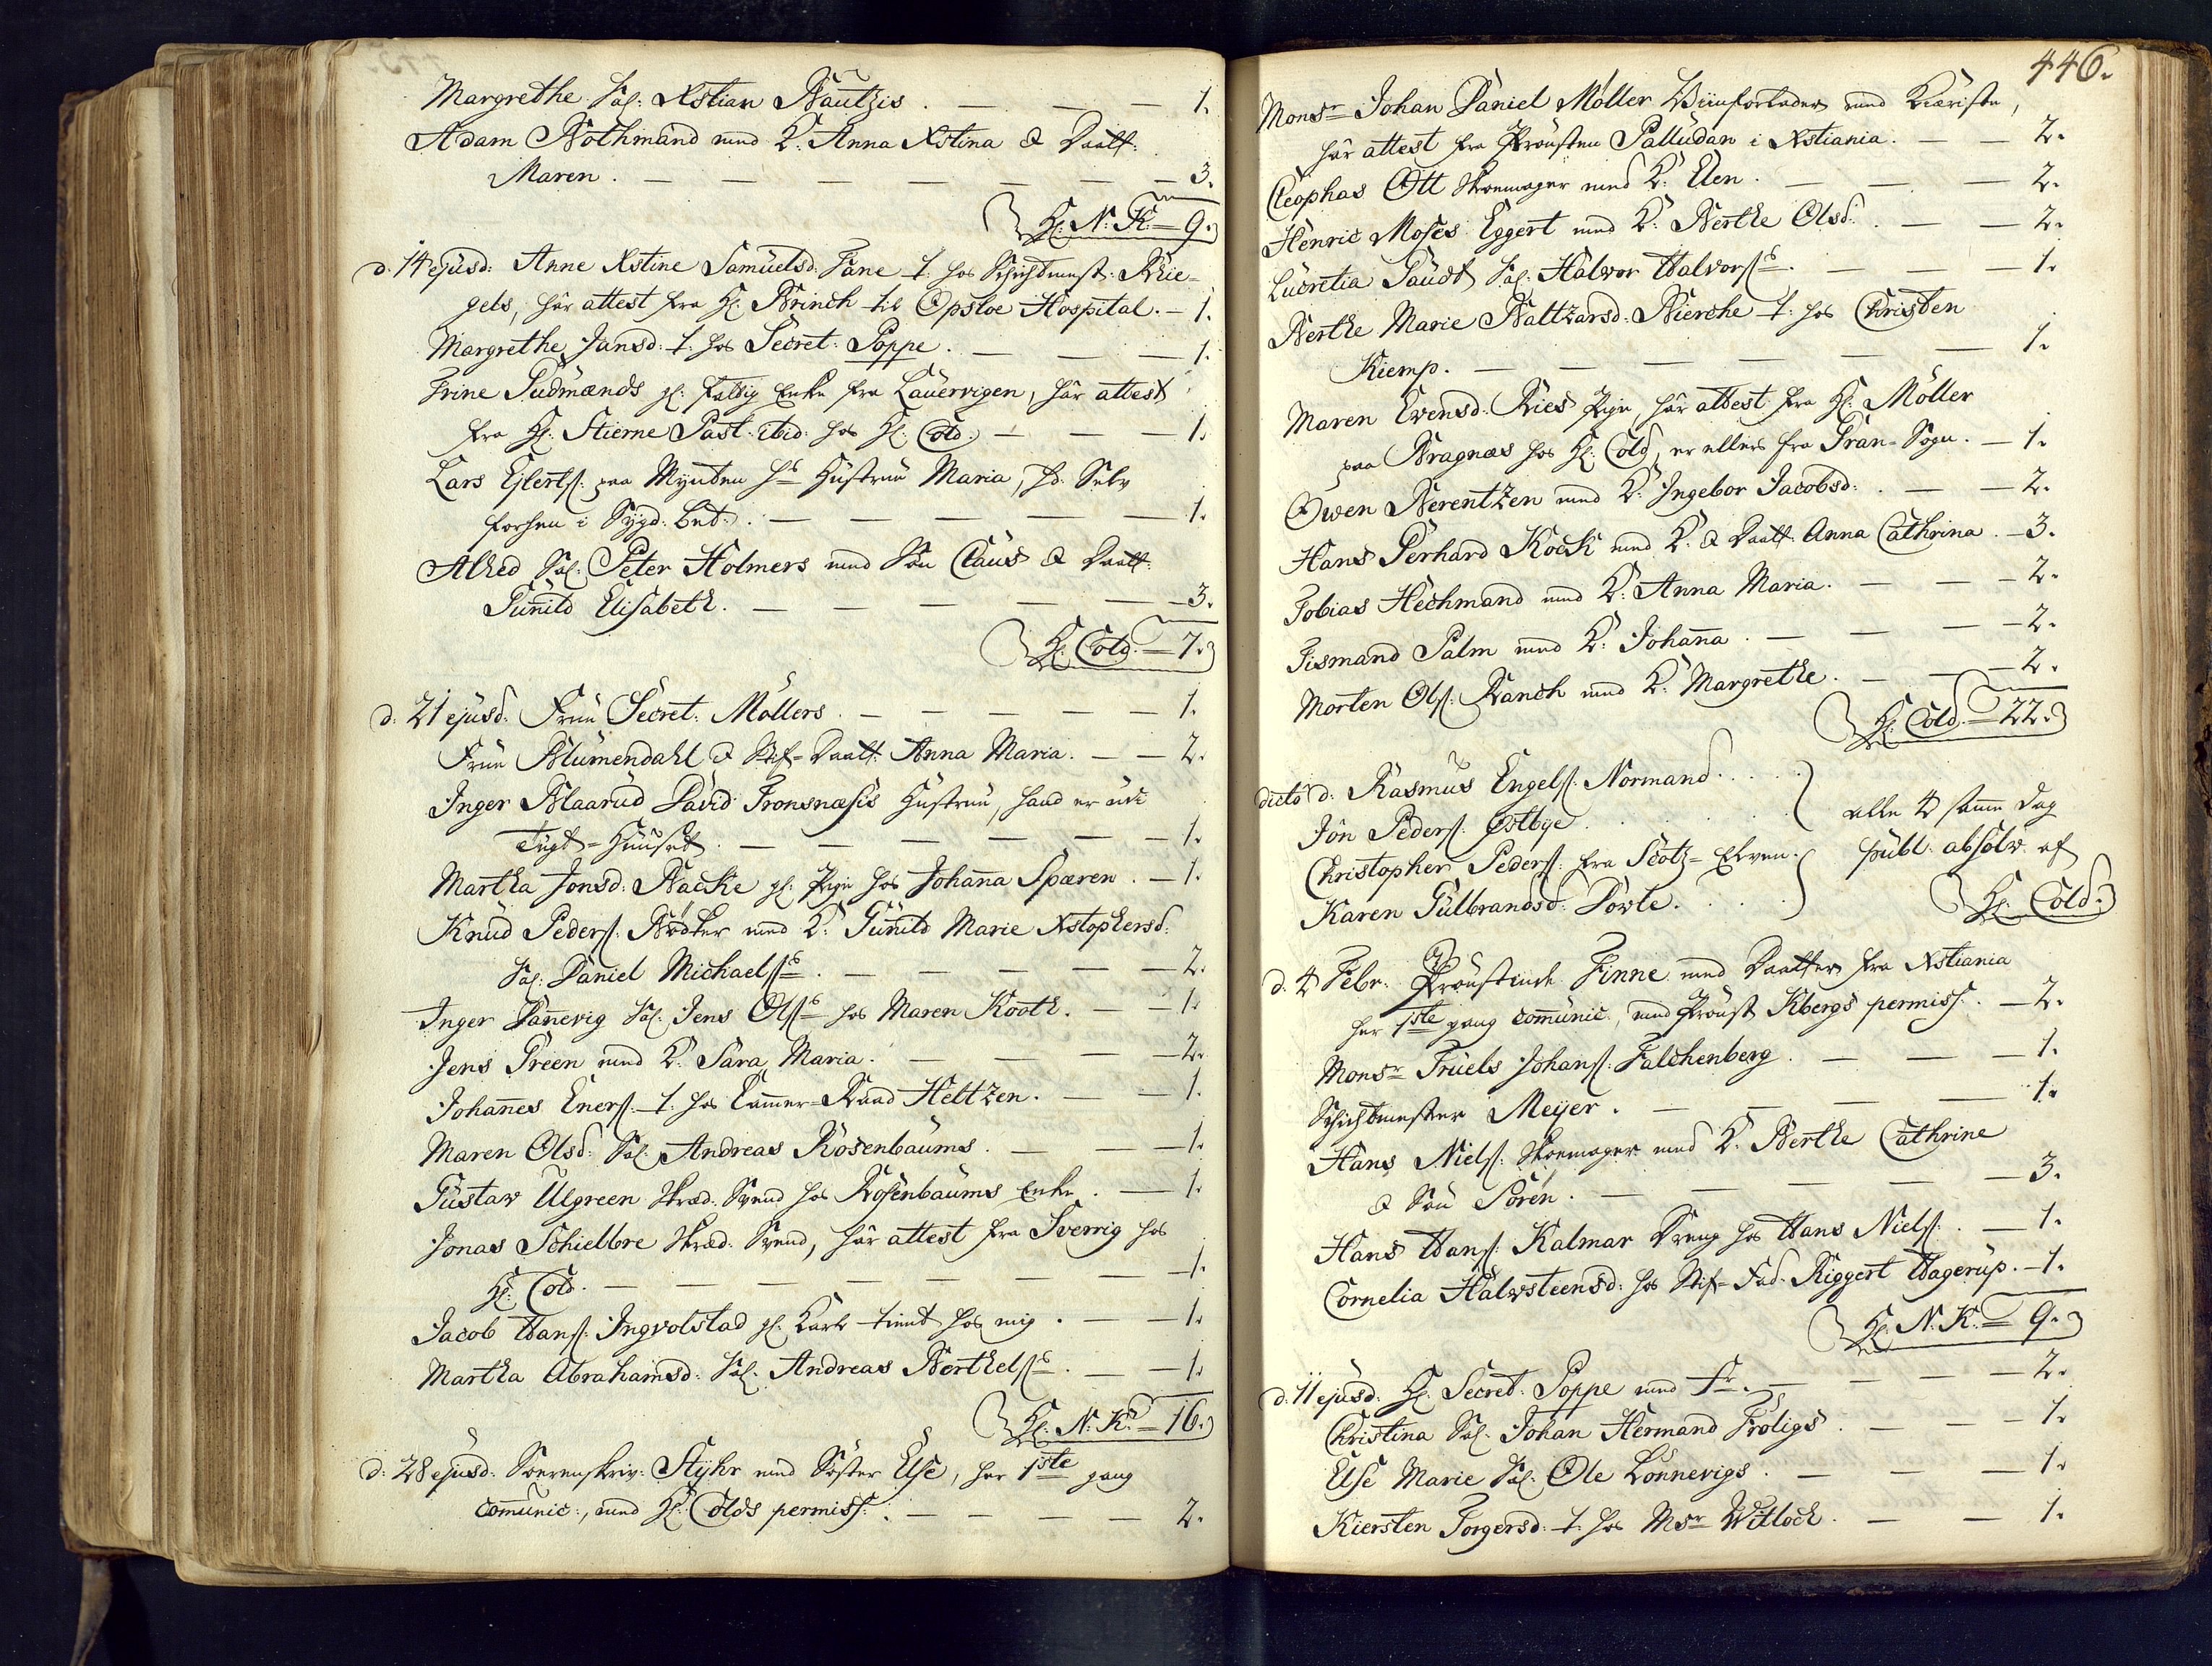 Margrethe Sal: Xstian Bautzis . — — — 1.
Adam Bothmand med K: Anna Xstina & Daatt:
Maren . — — — — — — — 3.
Hr. N. K. = 9.
d. 14 ejusd: Anne Xstine Samuelsd: Fane t: hos Schichtmest: Rie-
gels, har attest fra Hr. Brinch til Opsloe Hospital. — 1.
Margrethe Jansd: t: hos Secret: Poppe . — — — 1.
Trine Gudmænds gl: fattig Enke fra Lauervigen, har attest
fra Hr. Stierne Past. ibid: hos Hr. Cold. — — — 1.
Lars Ejlerts: paa Mynten hs Hustrue Maria, hd. Selv
forhen i Sygd: bet: . — — — — — 1.
Alhed Sal: Peter Holmers med Søn Claus & Daatt:
Gunild Elisabeth. — — — — — 3.
Hr. Cold = 7.
d: 21 ejusd: Frue Secret: Møllers . — — — — — 1.
Frue Blumendahl & Stif-Daatt: Anna Maria. — — 2.
Inger Blaarud David Tronsnæsis Hustrue, hand er udi
Tugt-Huuset . — — — — — — 1.
Martha Jonsd: Backe gl: Pige hos Johanna Sparen . — 1.
Knud Peders: Bødker med K: Gunild Marie Xstophersd:
Sal: Daniel Michaels: . — — — — — 2.
Inger Dannevig Sal: Jens Ols: hos Maren Kooth. — — 1.
Jens Green med K: Sara Maria. — — — — 2.
Johanes Eners: t: hos Cammer-Raad Heltzen. — — 1.
Maren Olsd: Sal: Andreas Rosenbaums . — — — 1.
Gustav Ulgreen Skræd: Svend hos Rosenbaums Enke . — 1.
Jonas Schielbre Skræd: Svend, har attest fra Sverrig hos
Hr. Cold. — — — — — — — 1.
Jacob Hans: Ingvolstad gl: Karl tient hos mig . — — 1.
Martha Abrahamsd: Sal: Andreas Berthels: . — — 1.
Hr. N. K. = 16.
d: 28 ejusd: Sorenskriv: Styhr med Søster Else, her 1ste gang
comunic:, med Hr. Colds permiss: . — — — — 2.
446.
Monsr Johan Daniel Møller Viinforlader med Kiæriste,
har attest fra Prousten Palludan i Xstiania. — — 2.
Cleophas Ott Skoemager med K: Elen . — — — 2.
Henric Moses Eggert med K: Berthe Olsd: . — — 2.
Lucretia Gaudt Sal: Halvor Halvors: . — — — 1.
Berthe Marie Baltzarsd: Bierche t: hos Christen
Kiemp. — — — — — — 1.
Maren Evensd: Ries Pige, har attest fra Hr. Møller
paa Bragnæs hos Hr. Cold, er ellers fra Gran-Sogn. — 1.
Owen Berentzen med K: Ingebor Jacobsd: . — — 2.
Hans Gerhard Kock med K: & Daatt: Anna Cathrina . — 3.
Tobias Hechmand med K: Anna Maria. — — — 2.
Tismand Palm med K: Johana . — — — — 2.
Morten Ols: Ranch med K: Margrethe. — — — 2.
Hr. Cold. = 22.
dicto d: Rasmus Engels: Normand . . . .
Jon Peders: Østbye . . . .
Christopher Peders: fra Scotz-Elven .
Karen Gulbrandsd: Dovle. . . .
alle 4 samme dag
publ: absolv: af
Hr. Cold.
d. 4 Febr: Proustinde Finne med Daatter fra Xstiania
her 1ste gang comunic:, med Proust Kbergs permiss: . — 2.
Monsr Truels Johans: Falchenberg . — — — 1.
Schichtmester Meyer . — — — — — 1.
Hans Niels: Skoemager med K: Berthe Cathrine
& Søn Søren . — — — — — 3.
Hans Hans: Kalmar Dreng hos Hans Niels: . — 1.
Cornelia Halvsteensd: hos Stif-Fad: Riggert Hagerup. — 1.
Hr. N. K. = 9.
d. 11 ejusd: Hr. Secret: Poppe med Fr: — — — — 2.
Christina Sal: Johan Hermand Froligs . — — — 1.
Else Marie Sal: Ole Lonnevigs . — — — — 1.
Kiersten Torgersd: t: hos Msr Witloch. — — — 1.